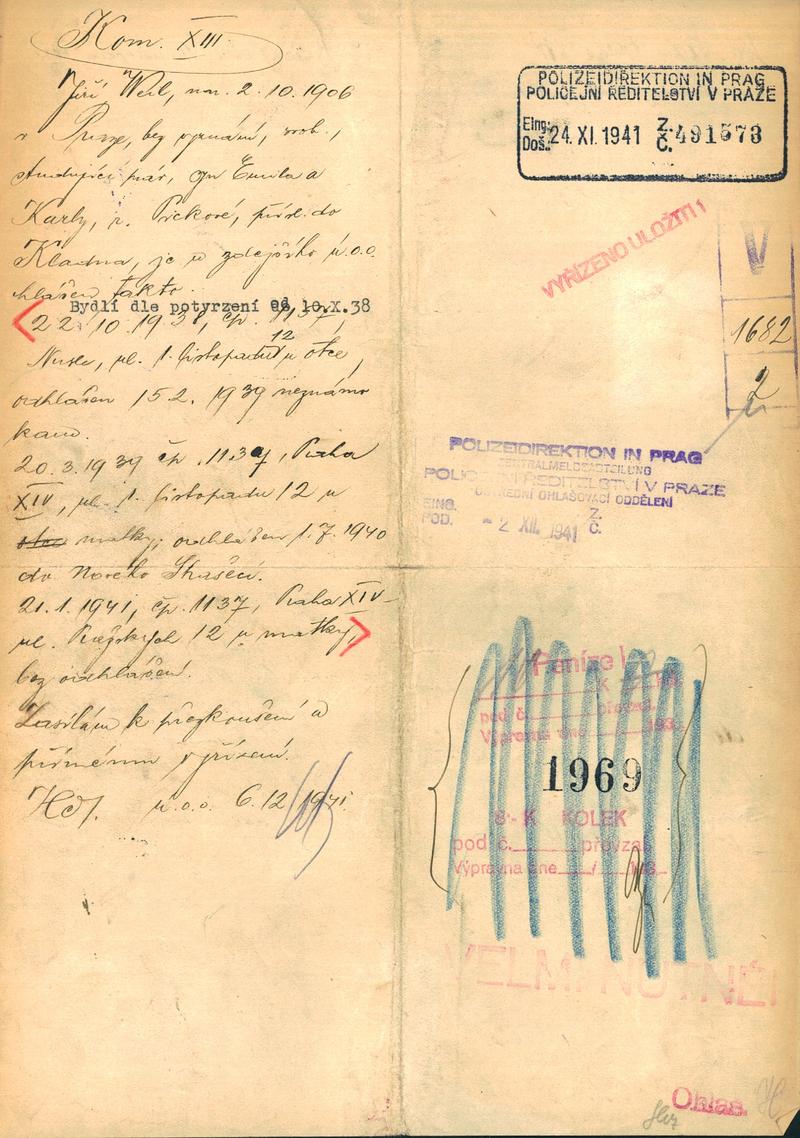 Kom. XIII.
Jiří Weil, nar. 2.10.1906
v Praze, bez vyznání, svob.,
studující práv, syn Emila a
Karly, r. Pickové, přísl. do
Kladna, je u zdejšího ú.o.o.
hlášen takto.
Bydlí dle potyrzení od 10.X.38
22.10.1938, čp. 1137,
Nusle, ul. 1. listopadu 12 u otce,
odhlášen 15.2. 1939 neznámo
kam.
20.3.1939 čp. 1137, Praha
XIV, ul. 1. listopadu 12 u
otce matky, odhlášen 1.7.1940
do Nového Strašecí.
21.1.1941, čp. 1137, Praha XIV-
ul. 12 u matky,
bez odhlášení.
Zasílám k přezkoušení a
přímému vyřízení.
ú.o.o. 6.12.1941.
POLIZEIDIREKTION IN PRAG
POLICEJNÍ ŘEDITELSTVÍ V PRAZE
Eing: Z.
Doš.: 24.XI.1941 Č. 491573
VYŘÍZENO ULOŽITI!
V
1682
2
POLIZEIDIREKTION IN PRAG
ZENTRALMELDEABTEILUNG
POLICEJNÍ ŘEDITELSTVÍ V PRAZE
ÚSTŘEDNÍ OHLAŠOVACÍ ODDĚLENÍ
EING. Z.
POD. - 2 XII. 1941 Č.
Peníze
K
pod č. převzal
Výpravna dne 193
1969
8·- K KOLEK
pod č. převzal
Výpravna dne / 193
VELMI NUTNÉ!
Ohlas.